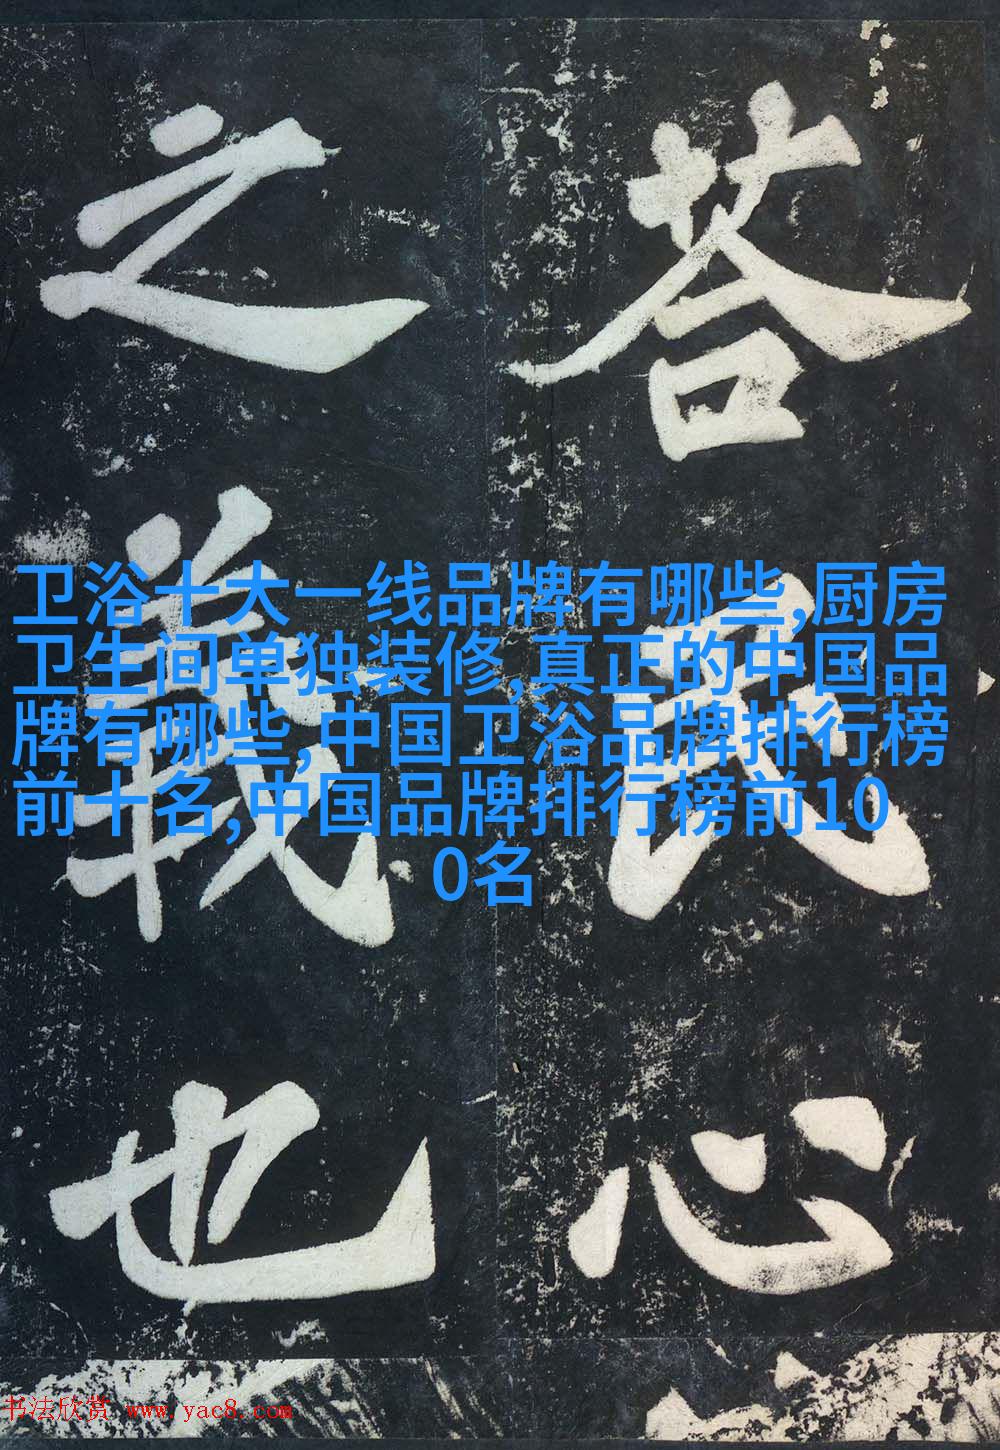 答民心
之義也
卫浴十大一线品牌有哪些,厨房
卫生间单独装修,真正的中国品
牌有哪些,中国卫浴品牌排行榜
前十名,中国品牌排行榜前10
0名
书法欣赏 www.yac8.com